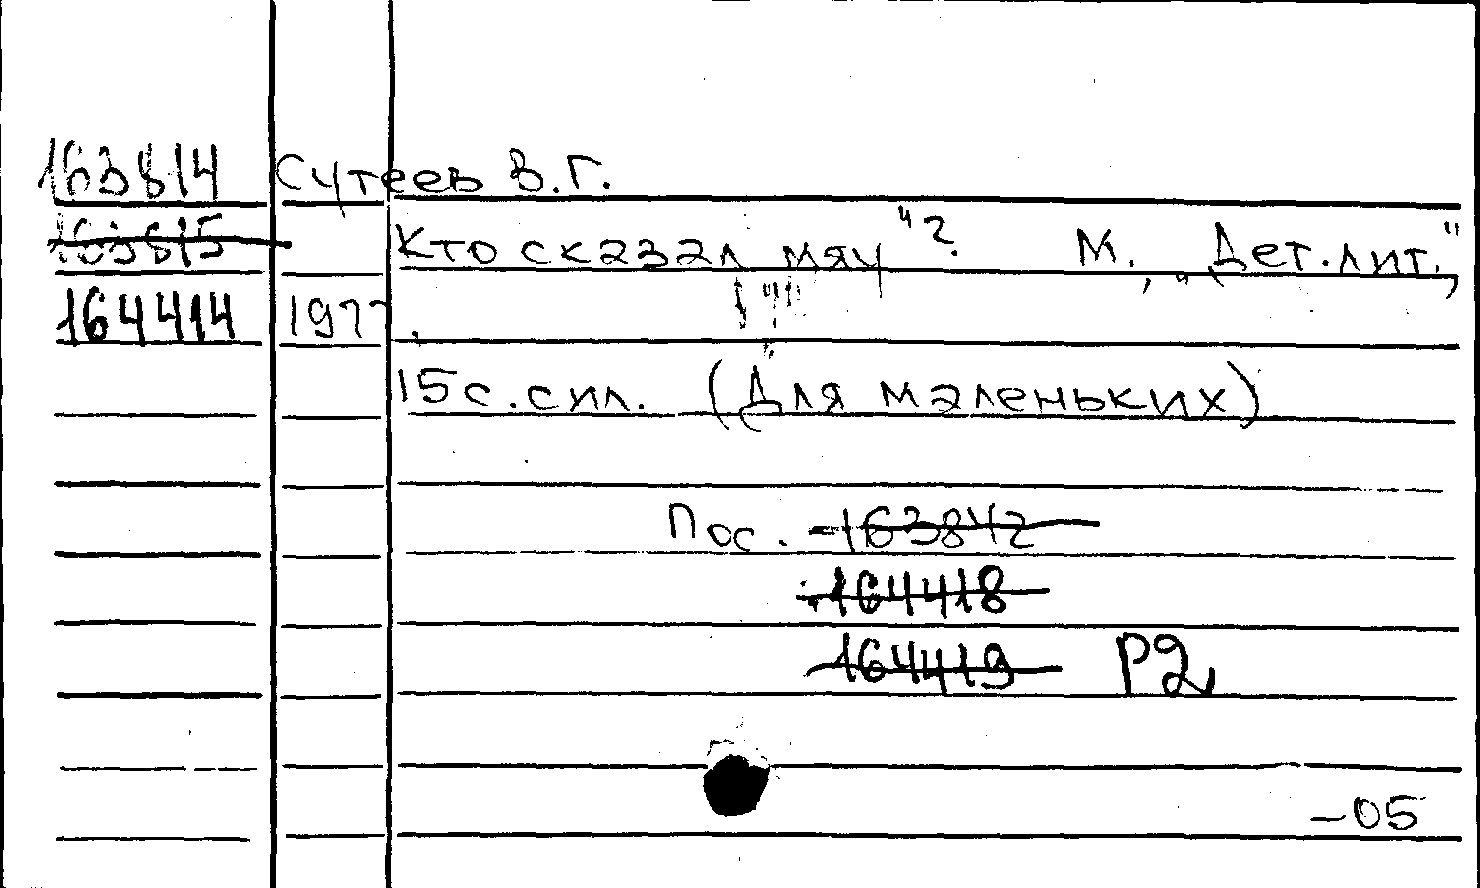 163814 Сутеев В.Г.
163815 Кто сказал мяу"? М., „Дет.лит.",
164414 1977.
15с.сил. (Для маленьких)
Пос. 163842
164418
164419 Р2
-05